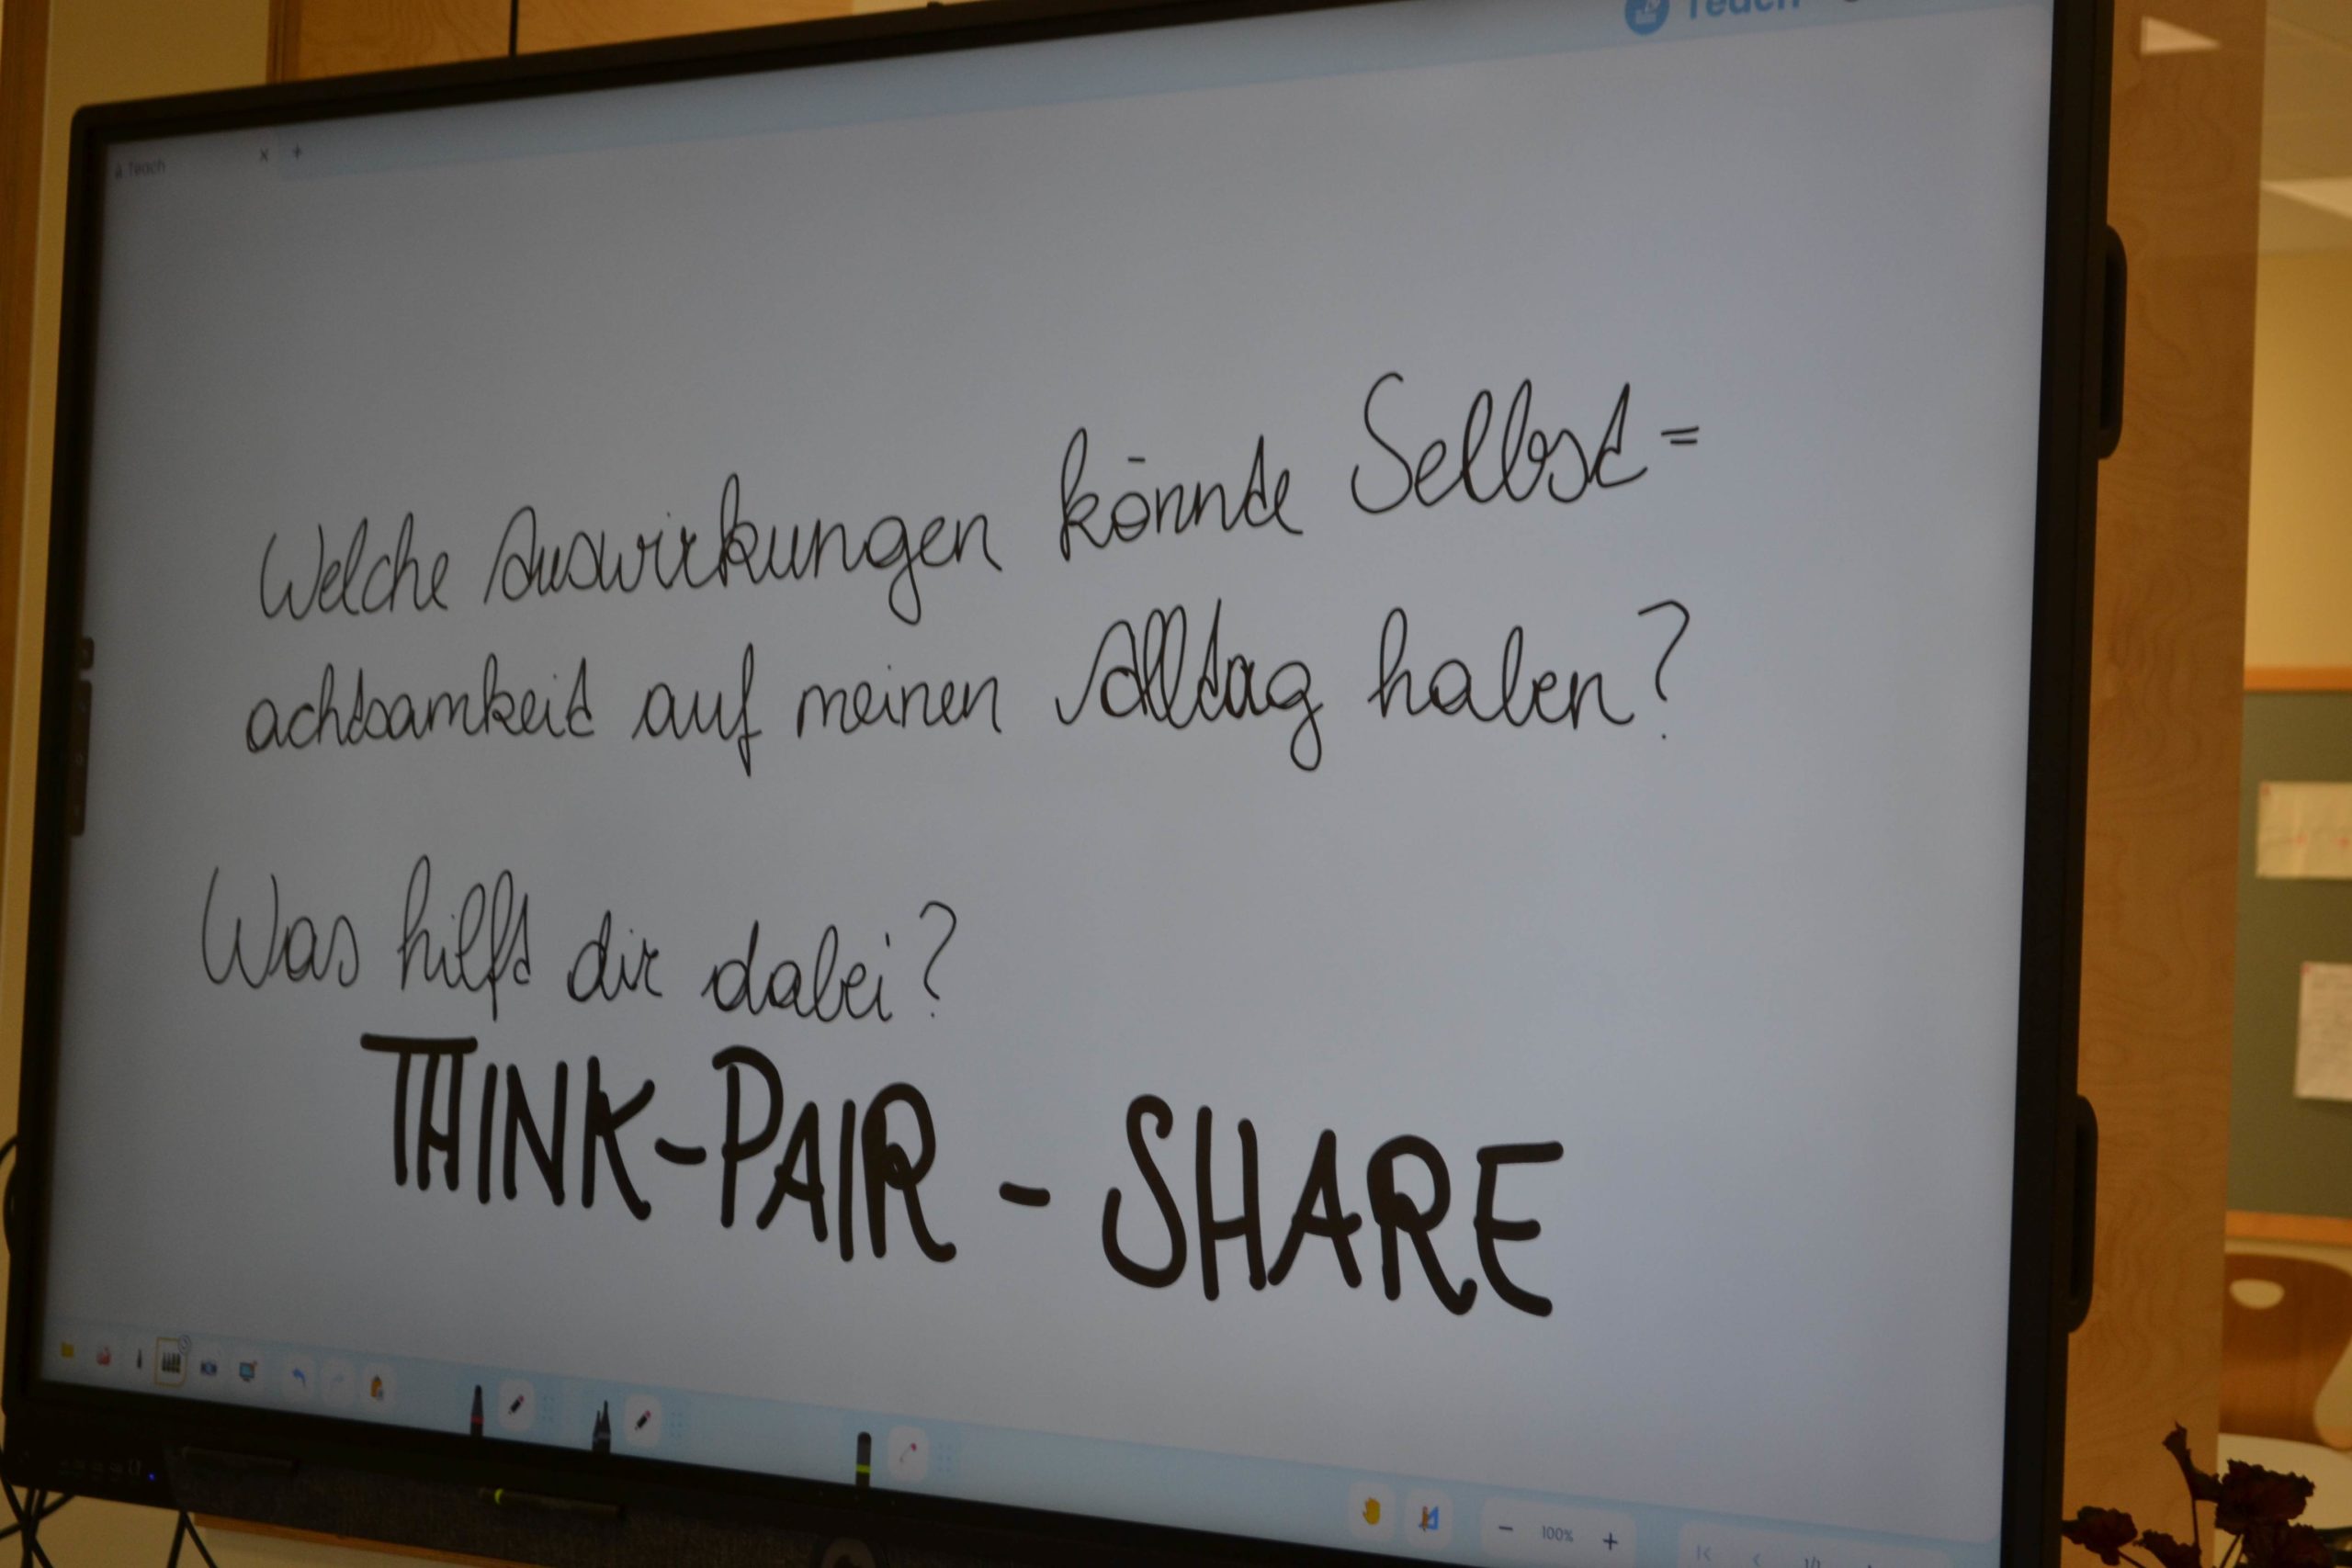 Teach
Teach
Welche Auswirkungen könnte Selbst=
achtsamkeit auf meinen Alltag haben?
Was hilft dir dabei?
THINK-PAIR - SHARE
100%
1/1